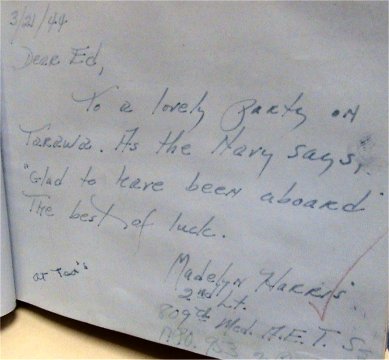 3/21/44
Dear Ed,
To a lovely party on
Tarawa. As the Navy says,
"Glad to have been aboard"
The best of luck.
at Tari's
Madelyn Harris
2nd Lt.
809th Med. A.E.T.S.